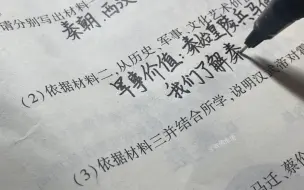 请分别写出材料
秦朝,西汉
(2)依据材料二,从历史、军事、文化艺术
军事价值:秦始皇陵兵马俑
我们了解秦
(3)依据材料三并结合所学,说明汉
对
司马迁、蔡伦